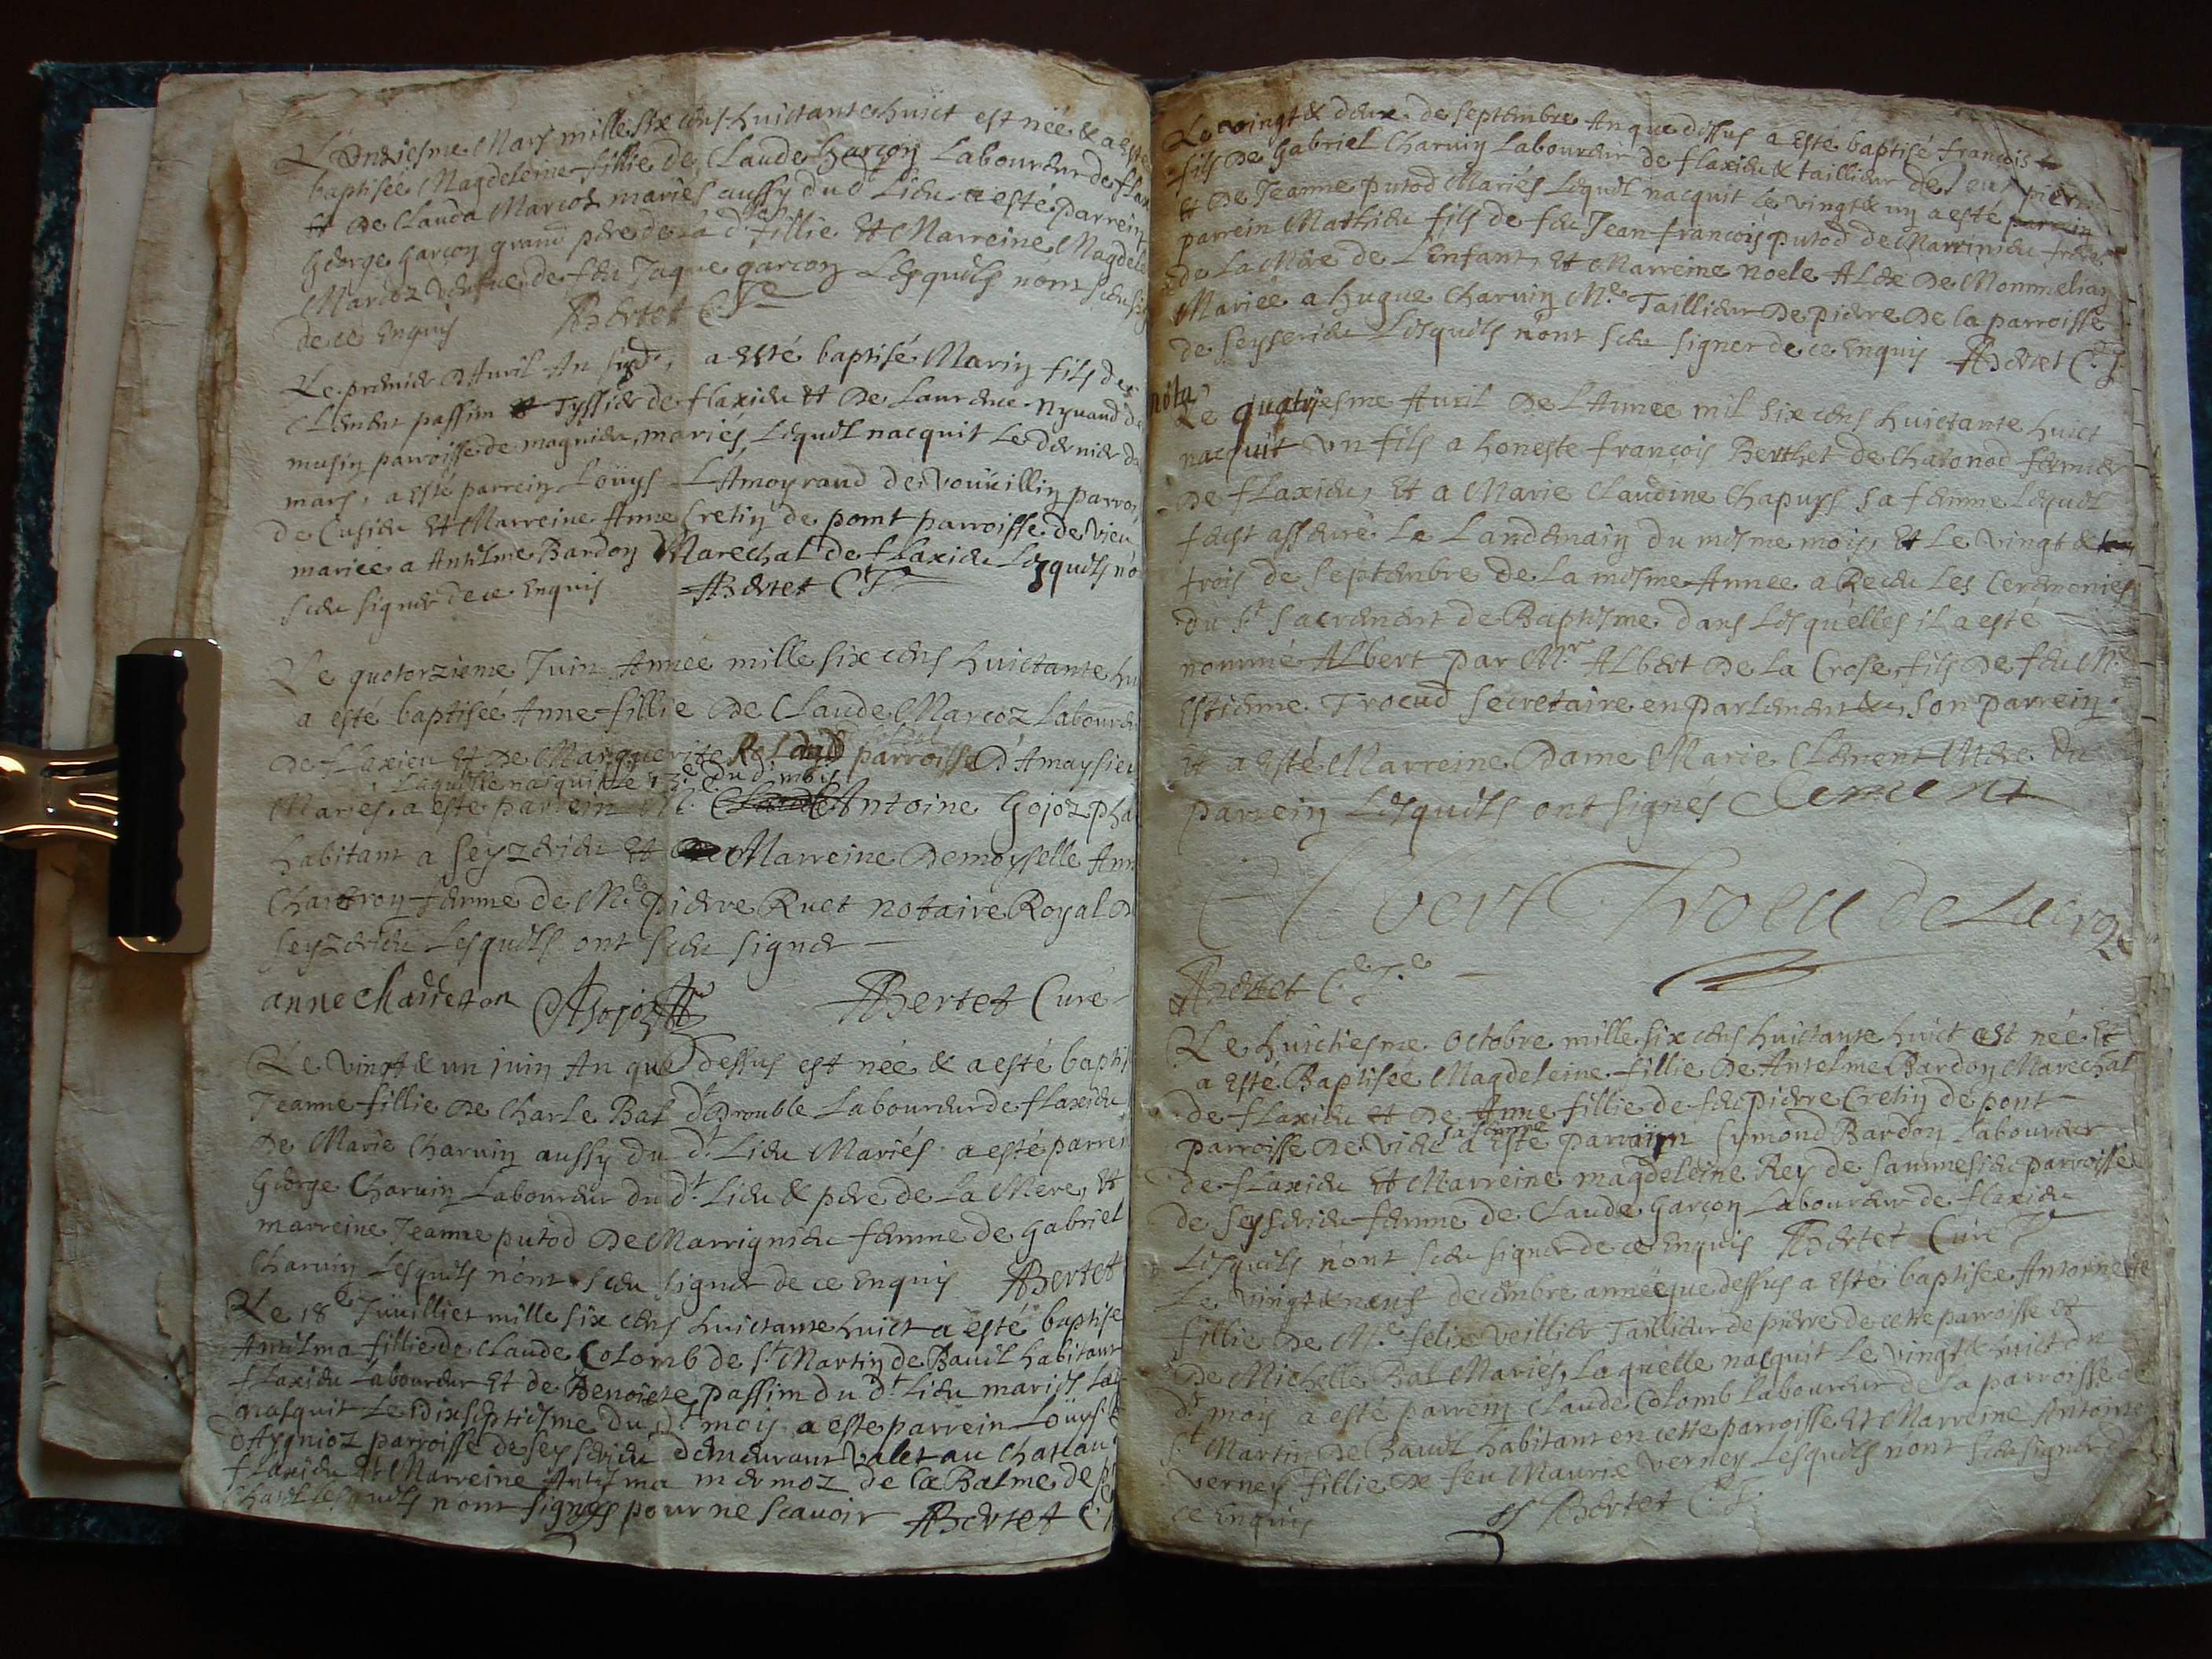 L'Onziesme Mars mille six cens huictante huict est née & a esté
baptisée Magdeleine fillie de Claude Garçon Laboureur de flax
et De Clauda Marcoz mariés aussy du dt Lieu a esté parrein
George Garçon grand pere de la dte fillie Et Marreine Magdel
Marcoz vefue de feu Jaque garcon Lesquels nont sceu sig
de ce Enquis ABertet C. Te
Le premier D'Auril An susdt, a Esté baptisé Marin fils de
Clement passim Tyssier de flaxieu et De Laurence Nyuaud de
musin parroisse de magnieu, mariés Lequel nacquit Le dernier de
mars, a esté parrein Loüys L'Amoyraud de Vouuillin parroi
de Cusieu Et Marreine Anne Cretin de pont parroisse de vieu
mariée a Antelme Bardon Marechal de flaxieu Lesquels no
sceu signer de ce Enquis ABertet C Te
Le quotorzieme Juin Année mille six cens huictante hu
a esté baptisée Anne fillie De Claude Marcoz laboureu
De flaxieu Et De Marguerite Roland parroisse D'Amaysieu
Laquelle nasquit le 13e du dt mois
Mariés. a este parrein M. Claude Antoine Gojoz pha
habitant a Seyzerieu Et Marreine Demoyselle Ann
Charreton femme de Me. Pierre Ruet notaire Royal D
Seyzerieu Lesquels ont sceu signer
anne charreton AGojoz ABertet Curé
Le vingt & un juin An que dessus est née & a esté bapti
Jeanne fillie De Charle Bal dt Drouble Laboureur de flaxieu
De Marie Charuin aussy du dt. Lieu Mariés. a esté parrei
George Charuin Laboureur du dt. Lieu & pere de La Mere, Et
marreine Jeanne putod De Marrignieu femme de Gabriel
Charuin Lesquels n'ont sceu signer de ce Enquis ABertet
Le 18e Juuilliet mille six cens huictante huict a esté baptise
Antelma fillie de Claude Colomb de St Martin de Bauel habitant
flaxieu Laboureur Et de Benoiete passim du dt Lieu mariés La
nasquit Le dixseptiesme du dt mois a este parrein Loüys
D'Aygnioz parroisse de Seyserieu demeurant valet au chateau
flaxieu Et Marreine Antelma mermoz de la Balme de
Lesquels nont signés pour ne scauoir ABertet C.
Le vingt & deux de septembre An que dessus a Esté baptisé françois
fils De Gabriel Charuin Laboureur de flaxieu & taillieur de pierre
Et De Jeanne putod Mariés Lequel nacquit Le vingt & un a esté parrein
parrein Mathieu fils de feu Jean françois putod de Marrinieu frere
de La Mere de L'Enfant, Et Marreine noele ALex De Mommelian
Mariée a hugue Charuin Me Taillieur De pierre De la parroisse
de Seyserieu Lesquels n'ont sceu signer de ce Enquis ABertet C. T.
nota
Le quatriesme Auril De L'Annee mil six cens huictante huict
nacquit vn fils a honeste françois Berthet de Chatonod fermier
De flaxieu, Et a Marie Claudine Chapuys sa femme Lequel
feust asseuré Le Landemain du mesme mois, Et Le vingt &
trois de Septembre de La mesme Annee a Receu Les Ceremonies
du St Sacrement de Baptesme. dans Lesquelles il a esté
nommé ALbert par Mr ALbert De La Crose, fils De feu Me
Estienne Trocud Secretaire en Parlement &c, Son parrein.
Et a Esté Marreine Dame Marie Clement Mere du
parrein Lesquels ont signés Clement
Albert Trocu de Lacroze
ABertet C.e T.e
Le huictiesme Octobre mille six cens huictante huict est née Et
a Esté Baptisée Magdeleine fillie De Antelme Bardon Marechal
de flaxieu et De Anne fillie de feu pierre Cretin de pont
sa femme
parroisse De vieu a Esté parrein Symond Bardon Laboureur
de flaxieu Et Marreine magdeleine Rey de Sammesieu parroisse
de Seyserieu femme de Claude Garçon Laboureur de flaxieu
Lesquels n'ont sceu signer de ce Enquis ABertet Curé
Le vingt & neuf decembre année que dessus a Esté baptisée Antoinette
fillie De Me felix veillier Taillieur de pierre de cette parroisse et
De Michelle Bal Mariés, La quelle nasquit Le vingt & huict du
dt mois a esté parrein Claude Colomb Laboureur de La parroisse de
St Martin De Bauel habitant en cette parroisse Et Marreine Antoine
verney fillie De feu Maurie verney Lesquels n'ont sceu signer de
ce Enquis ABertet C. T.